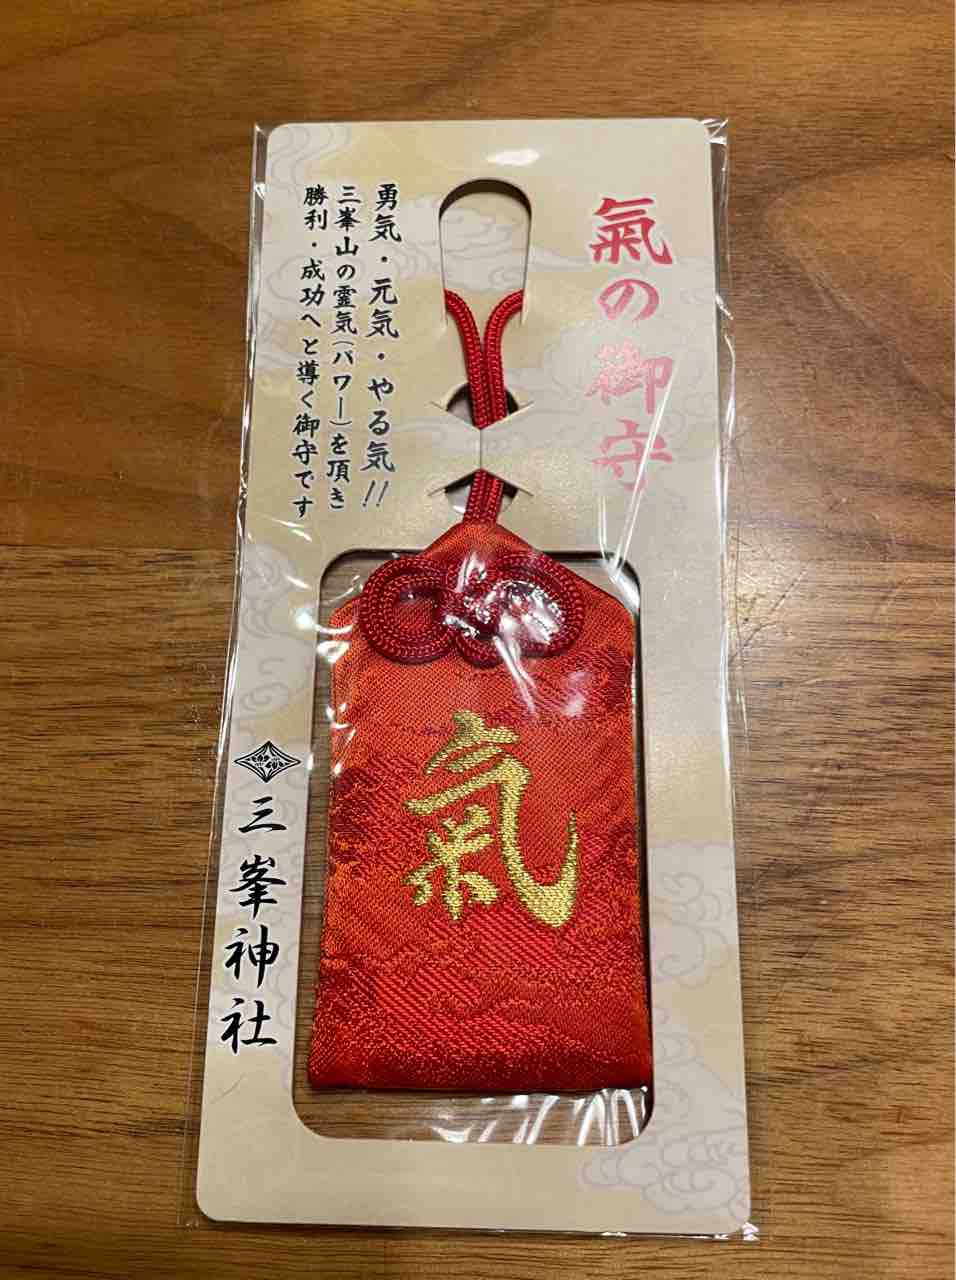 氣の御守
勇気・元気・やる気!!
三峯山の霊気(パワー)を頂き
勝利・成功へと導く御守です
氣
三峯神社